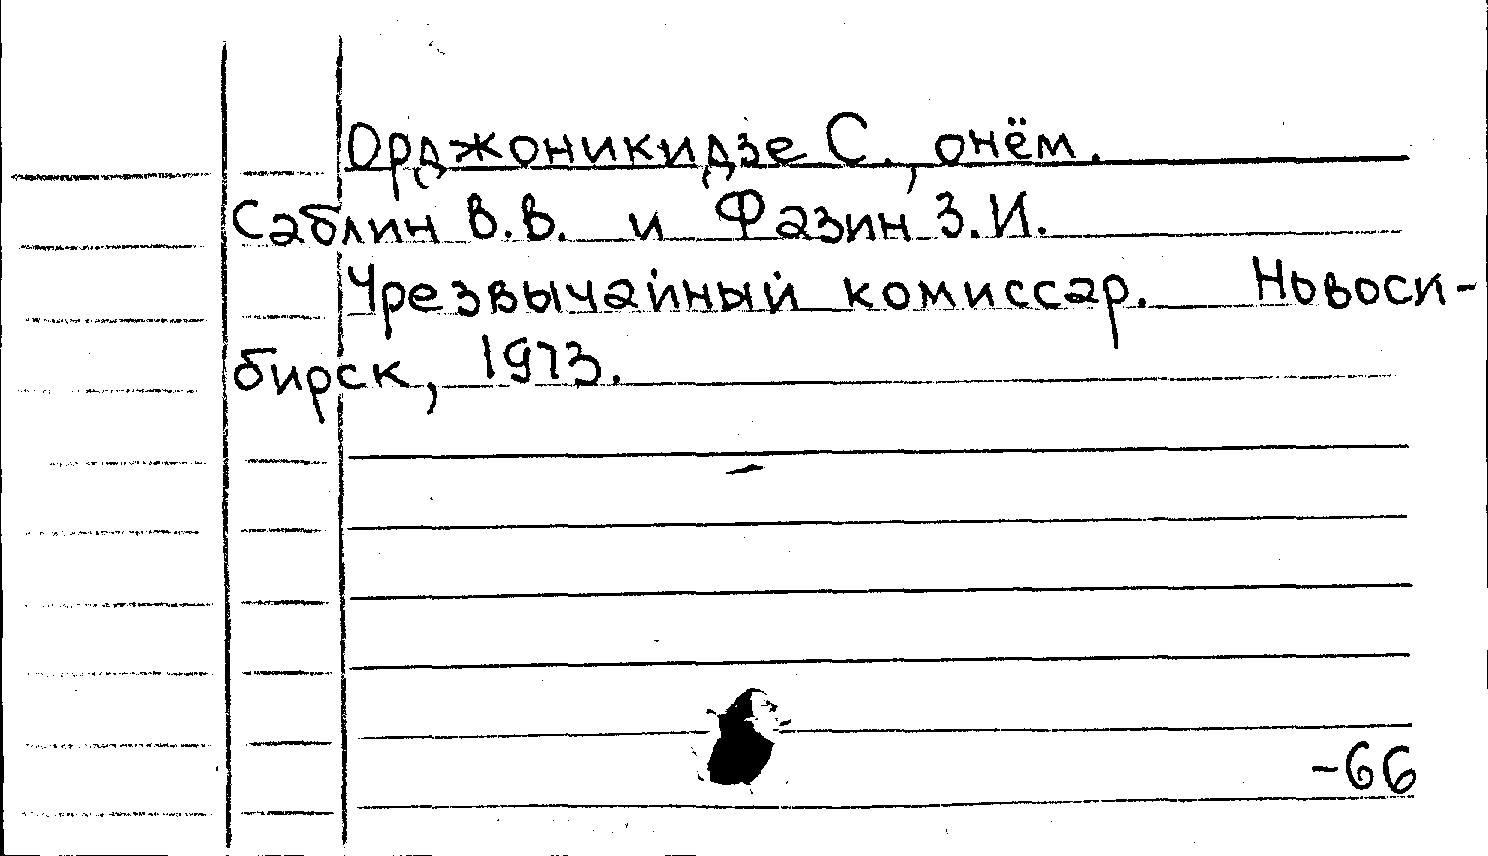 Орджоникидзе С., о нём.
Саблин В.В. и Фазин З.И.
Чрезвычайный комиссар. Новоси-
бирск, 1973.
-66